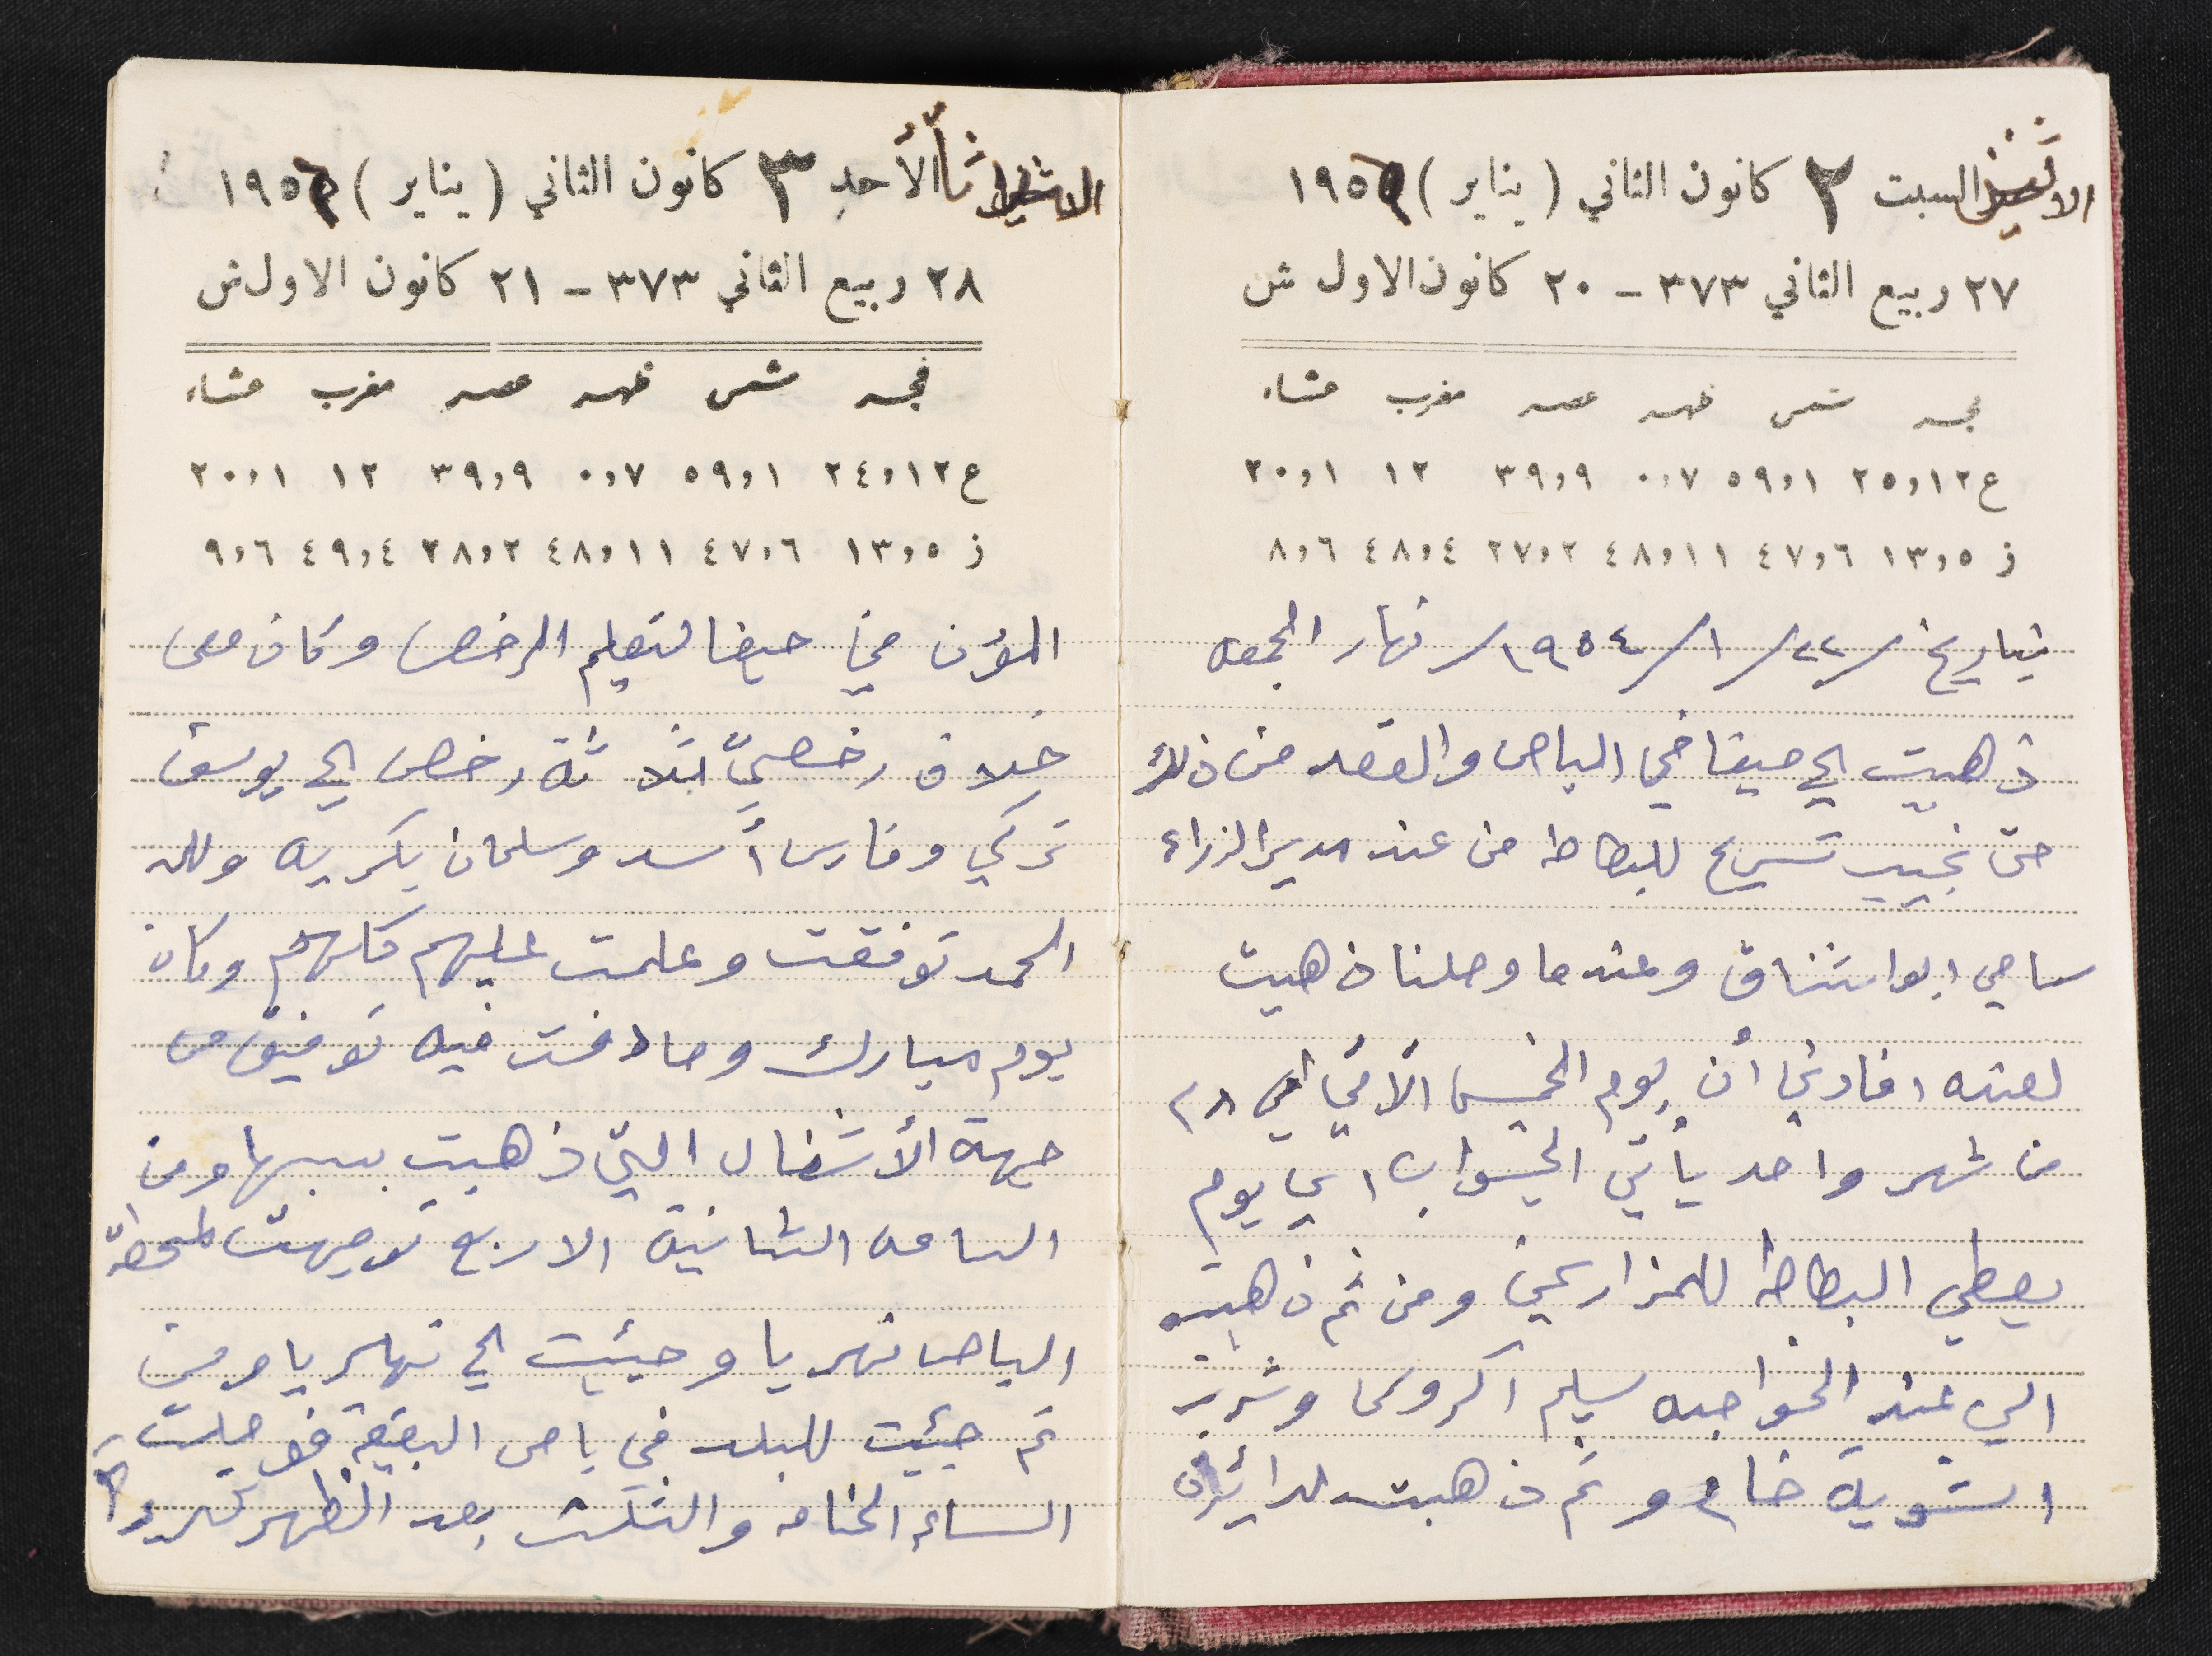 الاثنين السبت ٢ كانون الثاني (يناير) ١٩٥
٢٧ ربيع الثاني ٣٧٣ - ٢٠ كانون الاول ش
فجر شمس ظهر عصر مغرب عشاء
ع ١٢،٢٥ ١،٥٩ ٧،٠ ٩،٣٩ ١٢ ١،٢٠
ز ٥،١٣ ٦،٤٧ ١١،٤٨ ٢،٢٧ ٤،٤٨ ٦،٨
بتاريخ /٢٢/ ١/ ١٩٥٤/ نهار الجمعه
ذهبت الى حيفا في الباص والقصد من ذلك
حتى نجيب تسريح للبطاطا من عند مدير الزراعه
سامي ابو اشناق وعندما وصلنا ذهبت
لعنده افادني أن يوم الخميس الأتي في ٢٨
من شهر واحد يأتي الجواب اي يوم
يعطي البطاطا للمزارعين ومن ثم ذهبت
الى عند الخواجه سليم اكروس وشربت
اشوية خام وثم ذهبت لدائرة
الثلاثاء الأحد ٣ كانون الثاني (يناير) ١٩٥
٢٨ ربيع الثاني ٣٧٣ - ٢١ كانون الاول ش
فجر شمس ظهر عصر مغرب عشاء
ع ١٢،٢٤ ١،٥٩ ٧،٠ ٩،٣٩ ١٢ ١،٢٠
ز ٥،١٣ ٦،٤٧ ١١،٤٨ ٢،٢٨ ٤،٤٩ ٦،٩
المؤن في حيفا لتعليم الرخص وكان معي
خلاف رخصتي ثلاثة رخص الى يوسف
تركي وفارس أسد وسلمان بكريه ولله
الحمد توفقت وعلمت عليهم كلهم وكان
يوم مبارك وصادفت فيه توفيق من
جهة الأشغال التي ذهبت بسببها ومن
الساعه الثانية الا ربع توجهت لمحطة
الباص نهريا وجئت الى نهريا ومن
ثم جئت للبلد في باص البقيعة فوصلت
الساعه الخامسه والثلث بعد الظهر